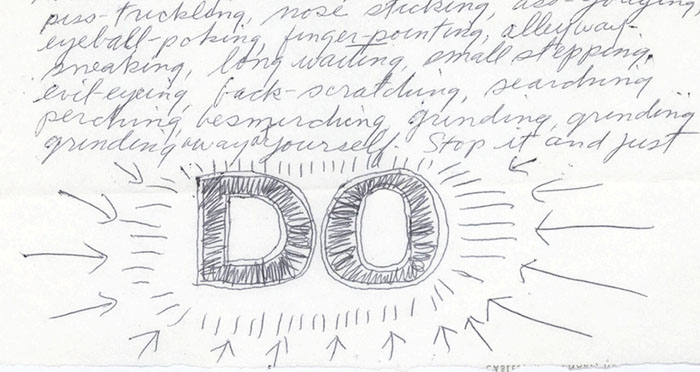 piss-trickling, nose sticking, ass-gouging,
eyeball-poking, finger-pointing, alleyway-
sneaking, long waiting, small stepping,
evil-eyeing, back-scratching, searching
perching, besmirching, grinding, grinding
grinding away at yourself. Stop it and just
DO